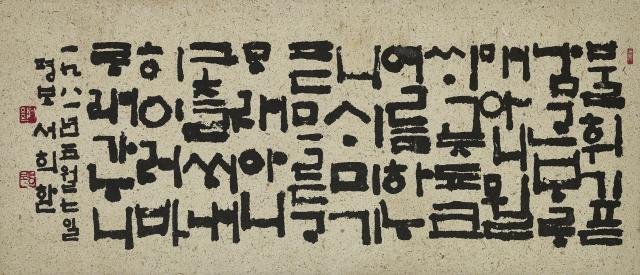 불휘기픈
남ᄀᆞᆫᄇᆞᄅᆞ
매아니뮐
ᄊᆡ곶됴코
여름하ᄂᆞ
니ᄉᆡ미기
픈므른ᄀᆞ
ᄆᆞ래아니
그츨ᄊᆡ내
히이러바
ᄅᆞ래가ᄂᆞ니
평보 서희환